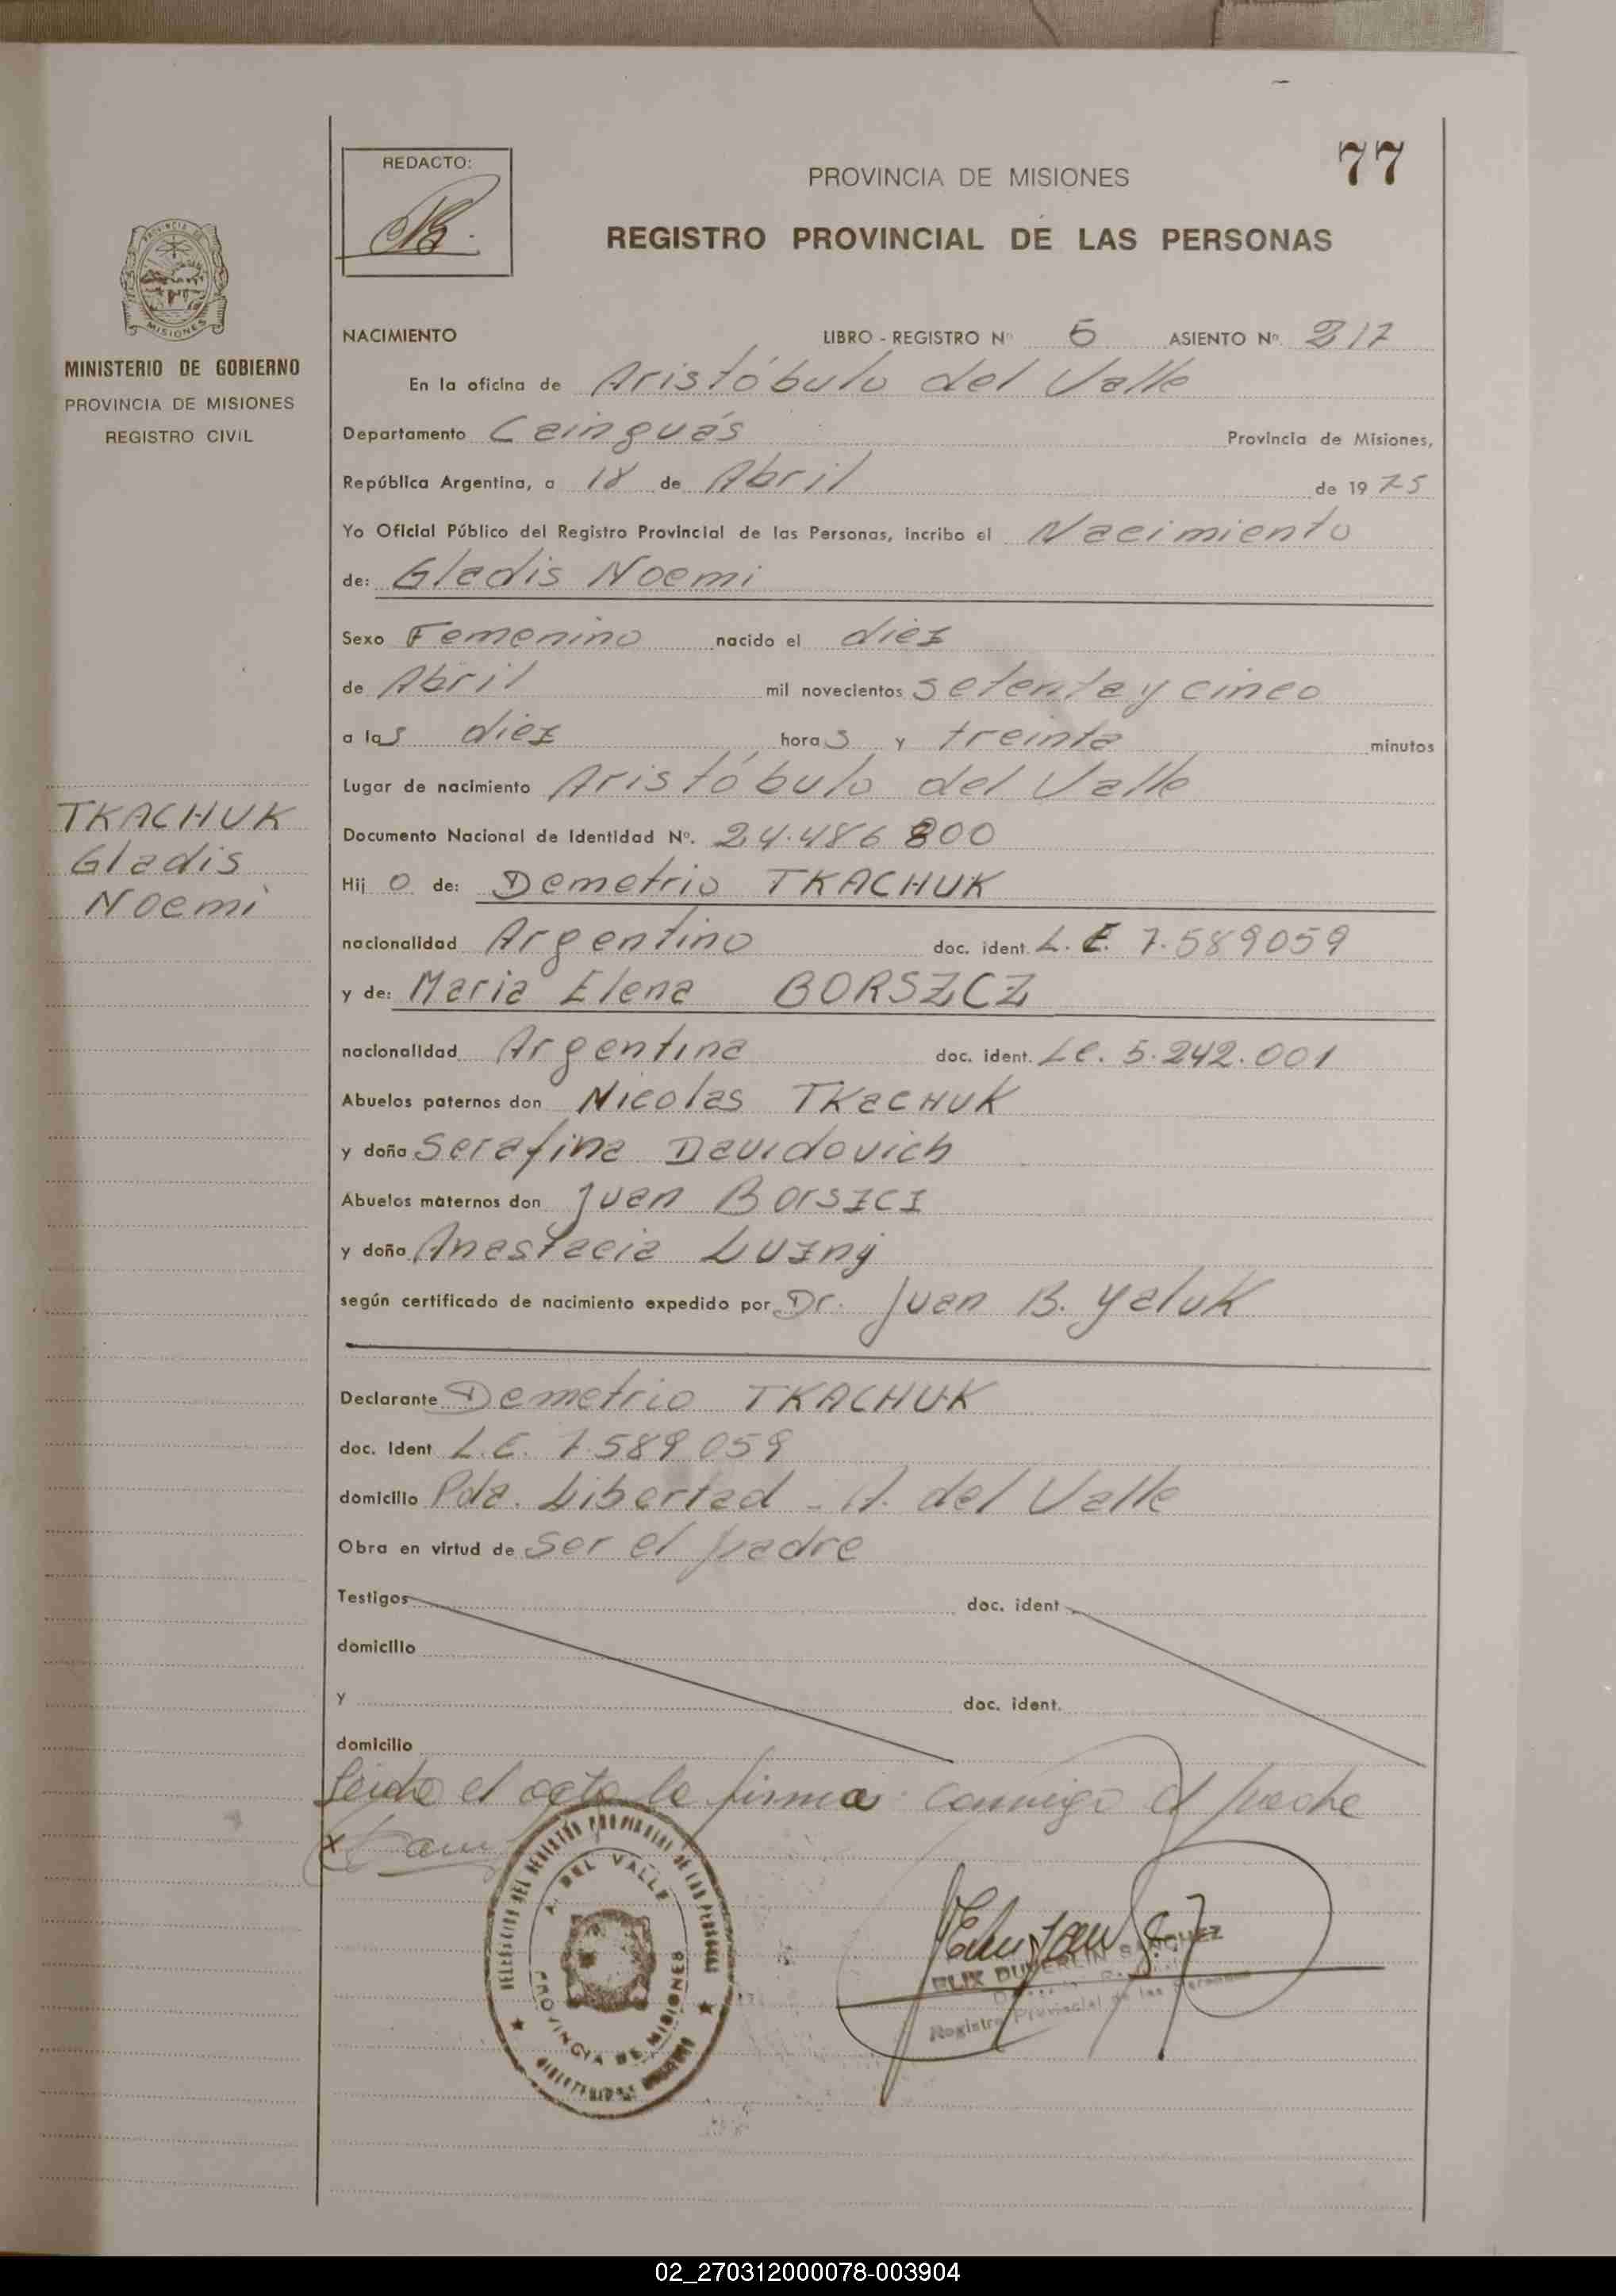 77
REDACTO:
PROVINCIA DE MISIONES
REGISTRO PROVINCIAL DE LAS PERSONAS
MISIONES
MINISTERIO DE GOBIERNO
PROVINCIA DE MISIONES
REGISTRO CIVIL
NACIMIENTO LIBRO - REGISTRO Nº 5 ASIENTO Nº. 217
En la oficina de Aristóbulo del Valle
Departamento Cainguás Provincia de Misiones,
República Argentina, a 18 de Abril de 1975
Yo Oficial Público del Registro Provincial de las Personas, incribo el Nacimiento
de: Gladis Noemi
Sexo Femenino nacido el diez
de Abril mil novecientos setenta y cinco
a las diez horas y treinta minutos
Lugar de nacimiento Aristóbulo del Valle
TKACHUK
Gladis
Noemi
Documento Nacional de Identidad Nº. 24.486 800
Hij o de: Demetrio TKACHUK
nacionalidad Argentino doc. ident. L. E. 7.589059
y de: Maria Elena BORSZCZ
nacionalidad Argentina doc. ident. Lc. 5.242.001
Abuelos paternos don Nicolas TKaCHUK
y doña Serafina Davidovich
Abuelos maternos don Juan Borszcz
y doña Anastacia Luzny
según certificado de nacimiento expedido por Dr. Juan B. Yaluk
Declarante Demetrio TKACHUK
doc. Ident L.E. 7.589.059
domicilio Pda. Libertad - A. del Valle
Obra en virtud de ser el padre
Testigos doc. ident
domicilio
y doc. ident.
domicilio
Leida el acta la firma: conmigo el padre
x
A. DEL VALLE
PROVINCIA DE MISIONES
SANCHEZ
Registro Provincial de las Personas
02_270312000078-003904